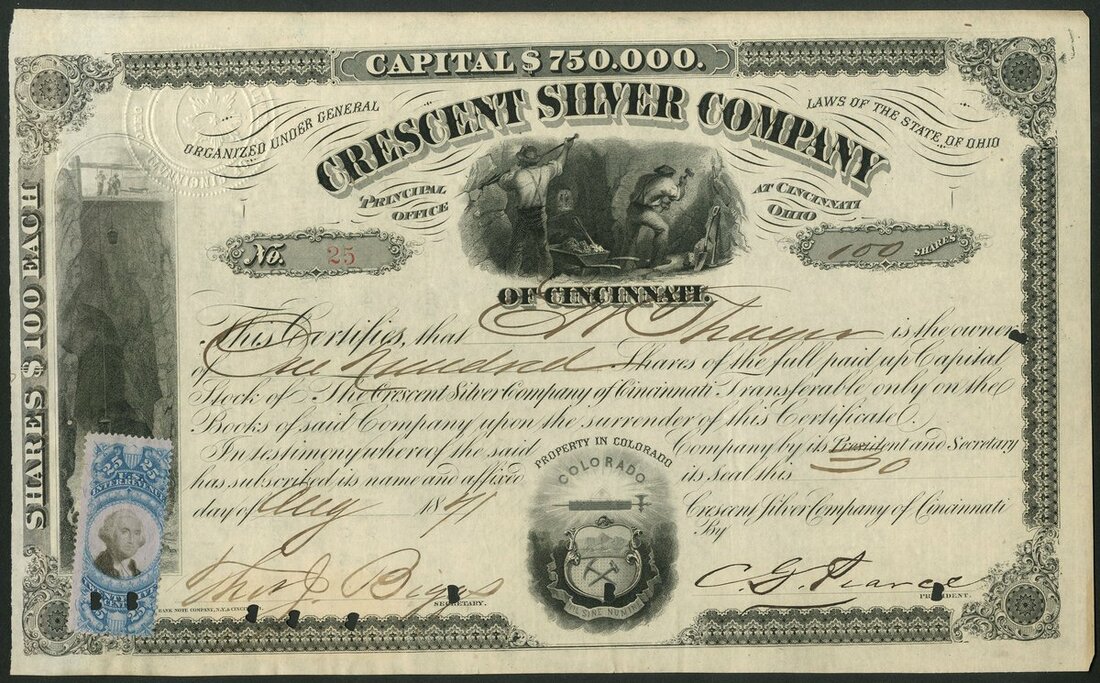 CAPITAL $750.000.
ORGANIZED UNDER GENERAL LAWS OF THE STATE OF OHIO
CRESCENT SILVER COMPANY
PRINCIPAL OFFICE AT CINCINNATI OHIO
No. 25
100 SHARES
OF CINCINNATI.
SHARES $100 EACH
This Certifies, that Thayer is the owner
of One Hundred Shares of the full paid up Capital
Stock of The Crescent Silver Company of Cincinnati Transferable only on the
Books of said Company upon the surrender of this Certificate.
In testimony whereof the said Company by its President and Secretary
has subscribed its name and affixed its seal this 30
day of Aug 1871
PROPERTY IN COLORADO
COLORADO
NIL SINE NUMINE
Crescent Silver Company of Cincinnati
By
25 25
U.S.
INTER. REVENUE
Thos J. Biggs
SECRETARY.
C. G. Pearce
PRESIDENT.
BANK NOTE COMPANY, N.Y. & CINCIN